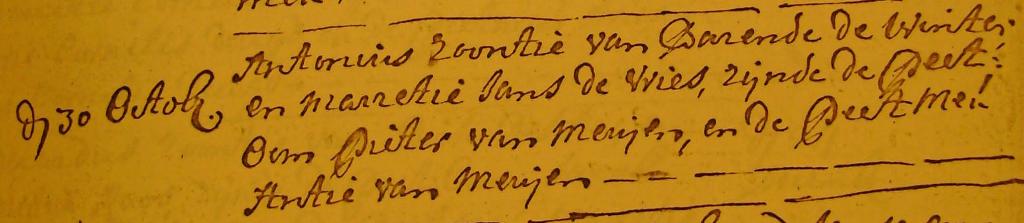 dj 30 Octob. Antonius zoontie van Barende de Winter
en marretie Jans de Wies, zijnde de Peet=
Oom Pieter van Meujen, en de Peet Meu
Antie van Meujen